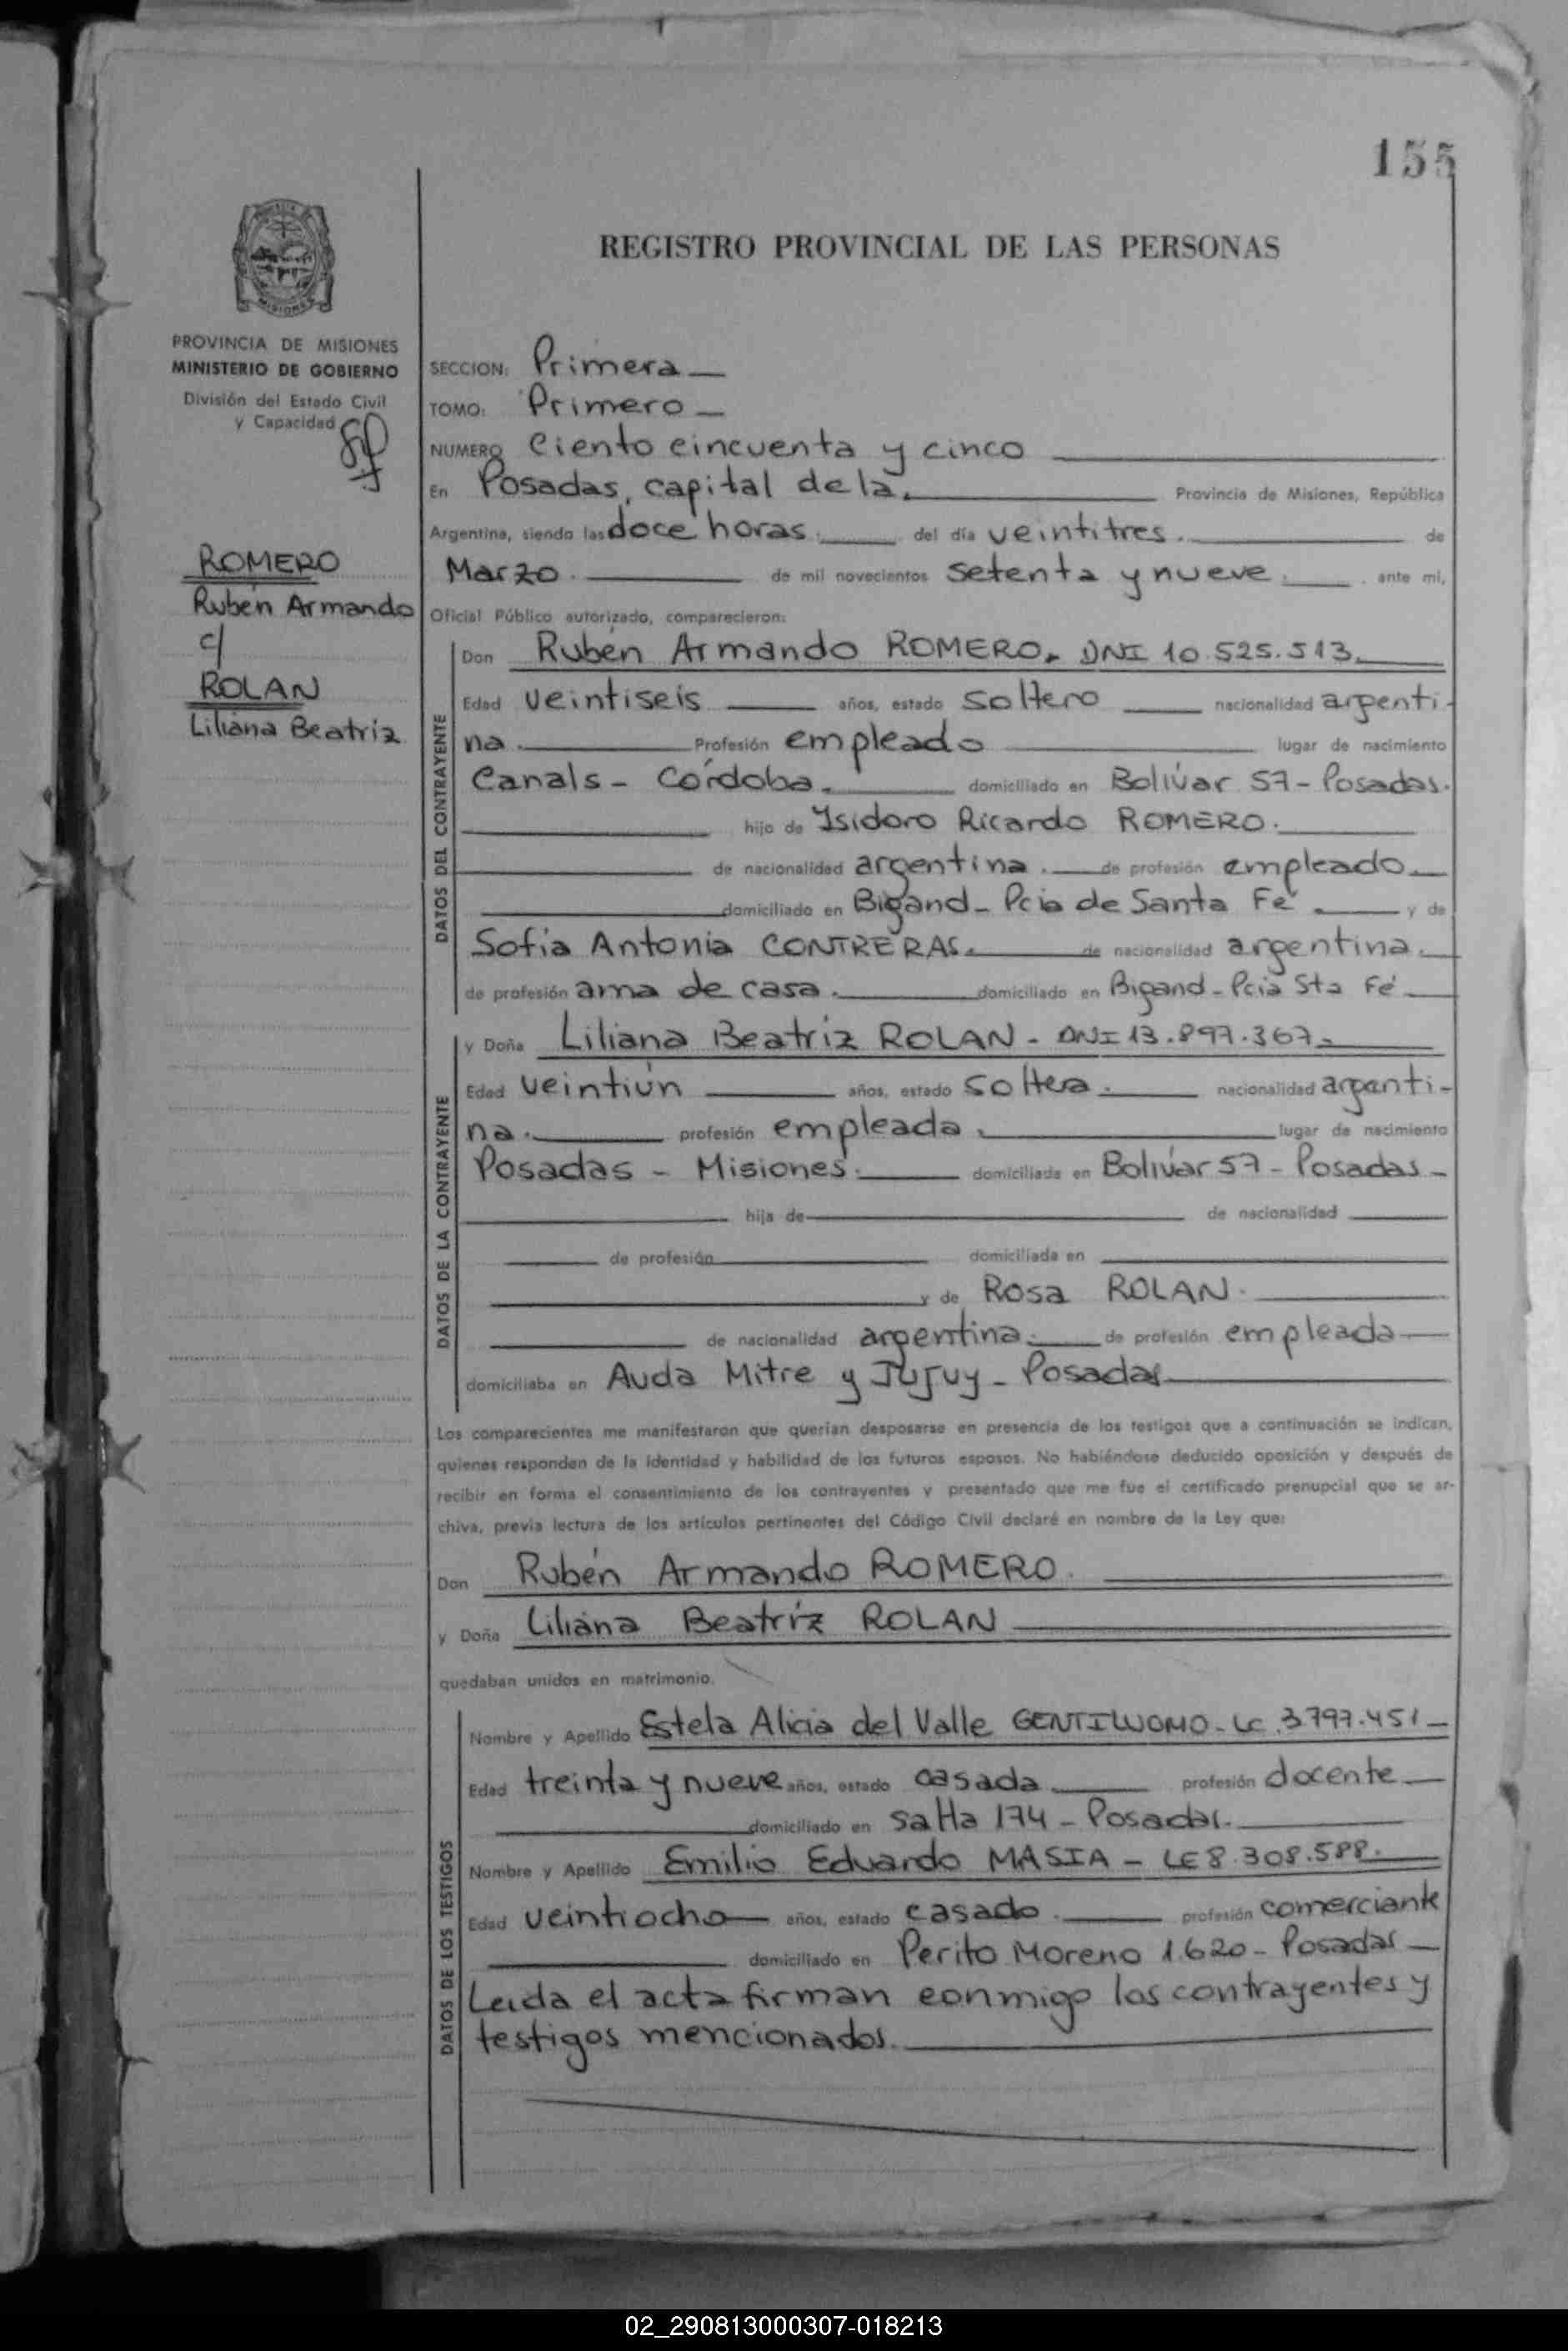 155
REGISTRO PROVINCIAL DE LAS PERSONAS
PROVINCIA DE MISIONES
MINISTERIO DE GOBIERNO
División del Estado Civil
y Capacidad
ROMERO
Rubén Armando
c/
ROLAN
Liliana Beatriz
SECCION: Primera
TOMO: Primero
NUMERO Ciento cincuenta y cinco
En Posadas, capital de la. Provincia de Misiones, República
Argentina, siendo las doce horas. del día veintitres. de
Marzo. de mil novecientos setenta y nueve. ante mi,
Oficial Público autorizado, comparecieron:
DATOS DEL CONTRAYENTE
Don Rubén Armando ROMERO. DNI 10.525.513.
Edad veintiseis años, estado soltero nacionalidad argenti-
na. Profesión empleado lugar de nacimiento
Canals - Córdoba. domiciliado en Bolívar 57 - Posadas.
hijo de Ysidoro Ricardo ROMERO.
de nacionalidad argentina. de profesión empleado
domiciliado en Bigand - Pcia de Santa Fé y de
Sofia Antonia CONTRERAS. de nacionalidad argentina.
de profesión ama de casa. domiciliado en Bigand - Pcia Sta Fé
DATOS DE LA CONTRAYENTE
y Doña Liliana Beatriz ROLAN - DNI 13.897.367-
Edad veintiún años, estado soltera. nacionalidad argenti-
na. profesión empleada. lugar de nacimiento
Posadas - Misiones. domiciliada en Bolívar 57 - Posadas -
hija de de nacionalidad
de profesión domiciliada en
y de Rosa ROLAN.
de nacionalidad argentina. de profesión empleada
domiciliaba en Avda Mitre y Jujuy - Posadas
Los comparecientes me manifestaron que querían desposarse en presencia de los testigos que a continuación se indican,
quienes responden de la identidad y habilidad de los futuros esposos. No habiéndose deducido oposición y después de
recibir en forma el consentimiento de los contrayentes y presentado que me fue el certificado prenupcial que se ar-
chiva, previa lectura de los artículos pertinentes del Código Civil declaré en nombre de la Ley que:
Don Rubén Armando ROMERO.
y Doña Liliana Beatriz ROLAN
quedaban unidos en matrimonio.
DATOS DE LOS TESTIGOS
Nombre y Apellido Estela Alicia del Valle GENTILUOMO - LC. 3.797.451 -
Edad treinta y nueve años, estado casada profesión docente
domiciliado en Salta 174 - Posadas.
Nombre y Apellido Emilio Eduardo MASIA - LE 8.308.588.
Edad veintiocho años, estado casado. profesión comerciante
domiciliado en Perito Moreno 1.620 - Posadas
Leida el acta firman conmigo los contrayentes y
testigos mencionados.
02_290813000307-018213